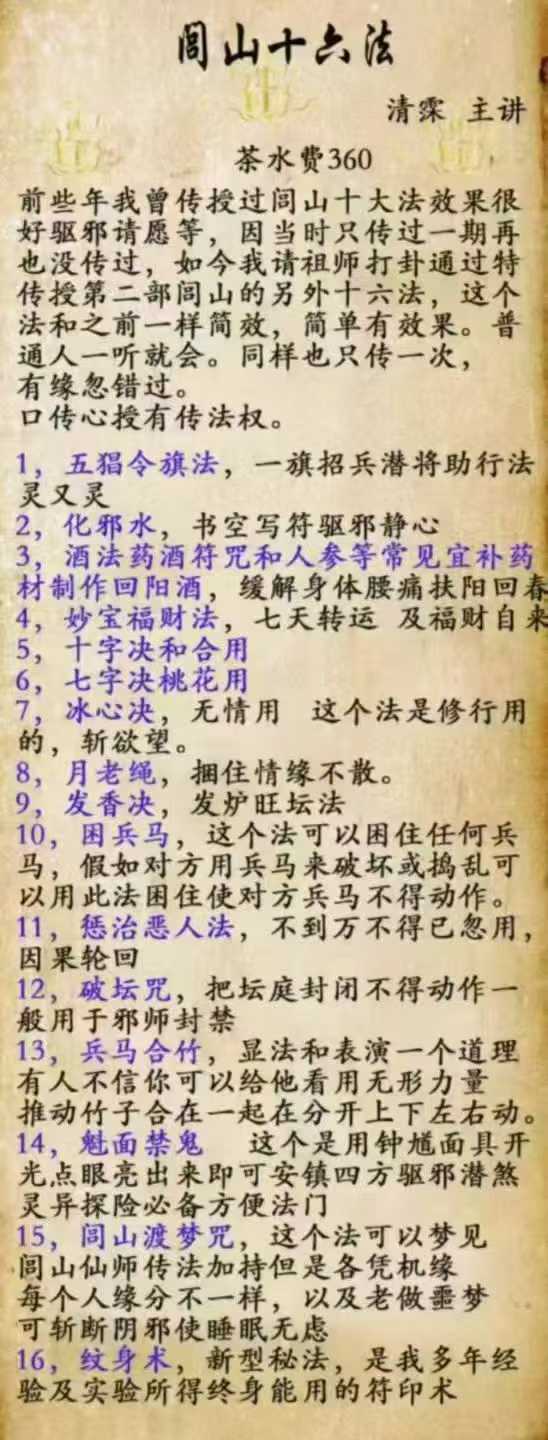 闾山十六法
清霂 主讲
茶水费360
前些年我曾传授过闾山十大法效果很
好驱邪请愿等，因当时只传过一期再
也没传过，如今我请祖师打卦通过特
传授第二部闾山的另外十六法，这个
法和之前一样简效，简单有效果。普
通人一听就会。同样也只传一次，
有缘忽错过。
口传心授有传法权。
1，五猖令旗法，一旗招兵潜将助行法
灵又灵
2，化邪水，书空写符驱邪静心
3，酒法药酒符咒和人参等常见宜补药
材制作回阳酒，缓解身体腰痛扶阳回春
4，妙宝福财法，七天转运 及福财自来
5，十字决和合用
6，七字决桃花用
7，冰心决，无情用 这个法是修行用
的，斩欲望。
8，月老绳，捆住情缘不散。
9，发香决，发炉旺坛法
10，困兵马，这个法可以困住任何兵
马，假如对方用兵马来破坏或捣乱可
以用此法困住使对方兵马不得动作。
11，惩治恶人法，不到万不得已忽用，
因果轮回
12，破坛咒，把坛庭封闭不得动作一
般用于邪师封禁
13，兵马合竹，显法和表演一个道理
有人不信你可以给他看用无形力量
推动竹子合在一起在分开上下左右动。
14，魁面禁鬼 这个是用钟馗面具开
光点眼亮出来即可安镇四方驱邪潜煞
灵异探险必备方便法门
15，闾山渡梦咒，这个法可以梦见
闾山仙师传法加持但是各凭机缘
每个人缘分不一样，以及老做噩梦
可斩断阴邪使睡眠无虑
16，纹身术，新型秘法，是我多年经
验及实验所得终身能用的符印术